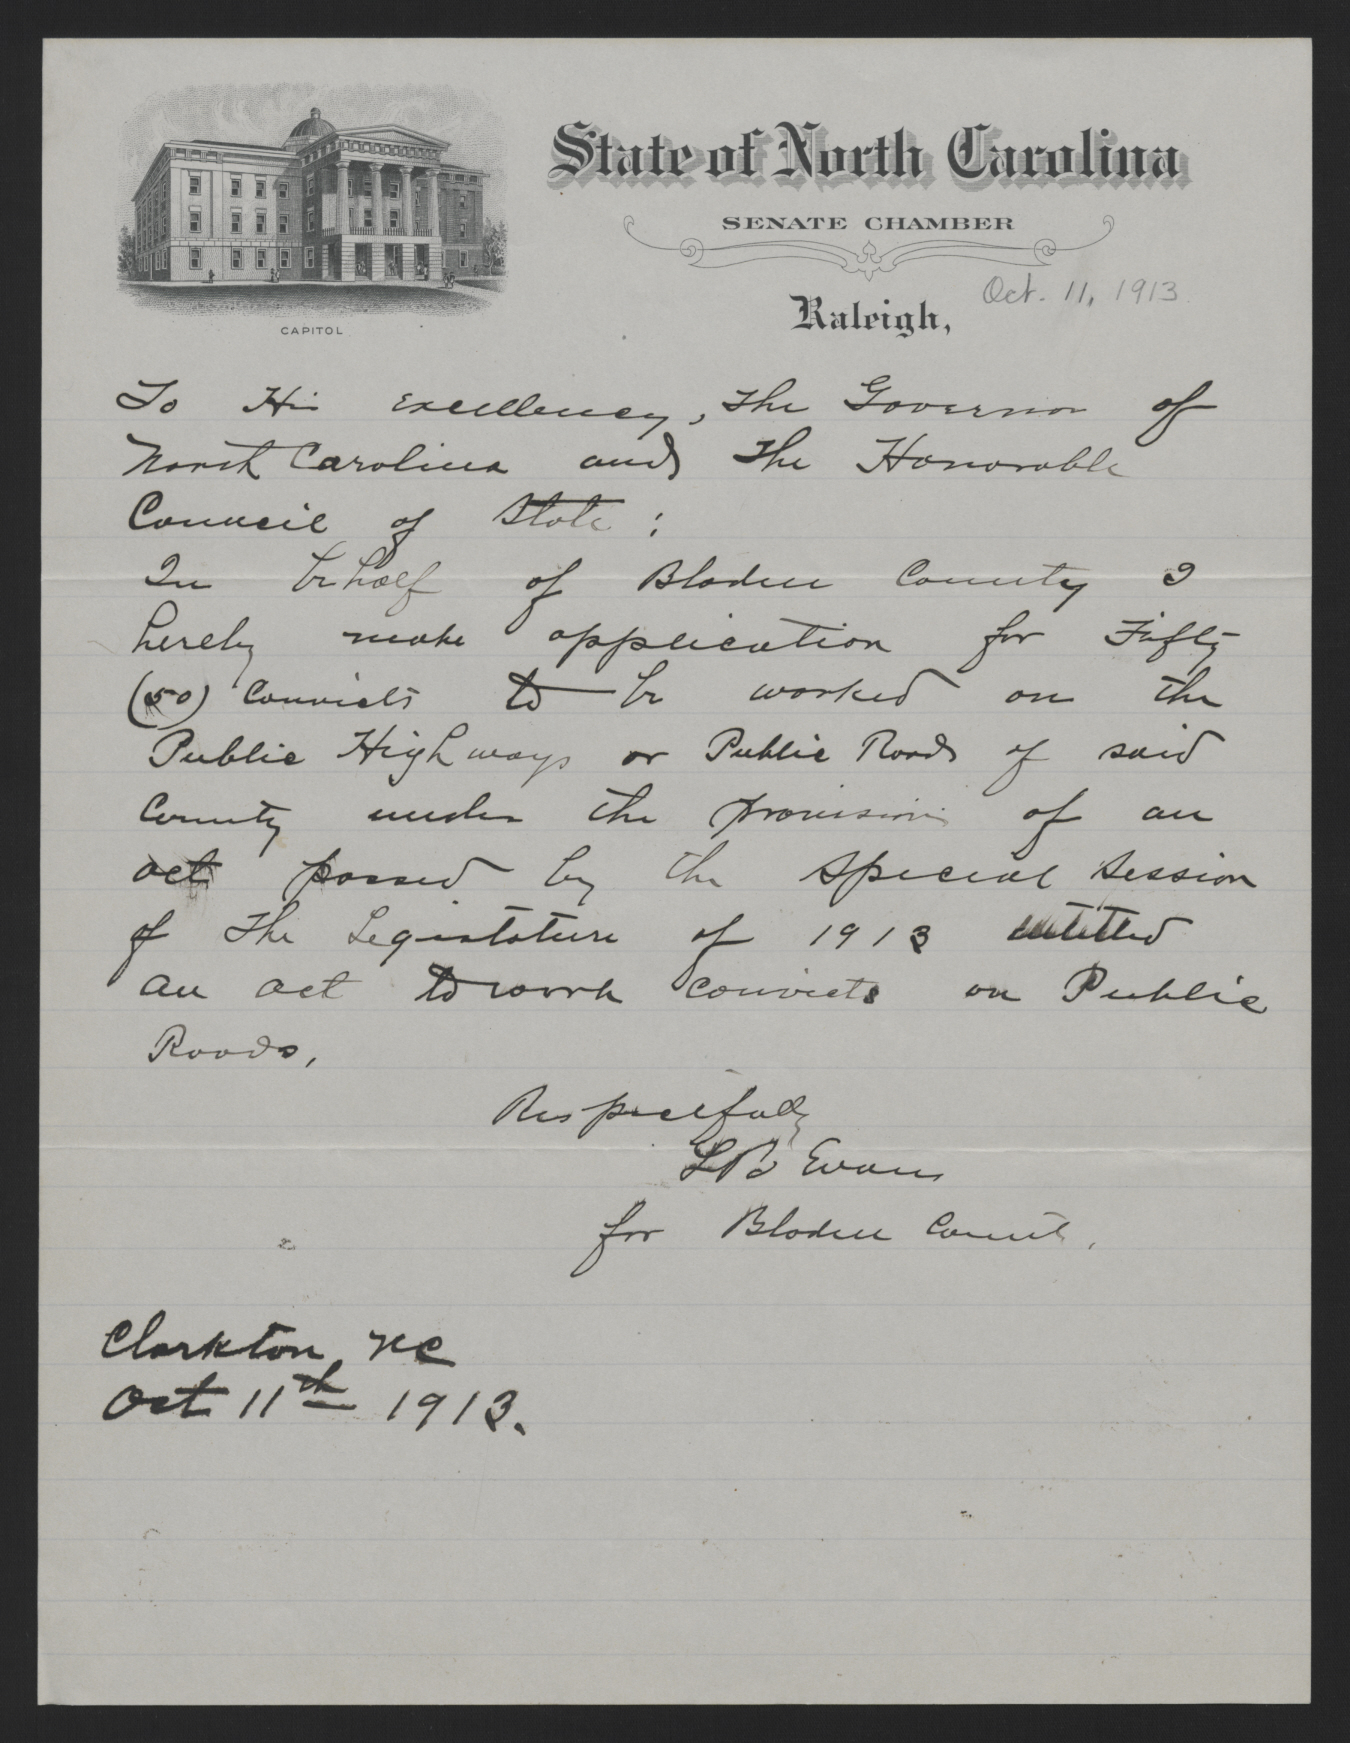 State of North Carolina
SENATE CHAMBER
Oct. 11, 1913
Raleigh,
CAPITOL
To His Excellency, The Governor of
North Carolina and The Honorable
Council of State :
In behalf of Bladen County I
hereby make application for Fifty
(50) Convicts to be worked on the
Public Highways or Public Roads of said
County under the provisions of an
act passed by the Special Session
of The Legislature of 1913 entitled
An act to work convicts on Public
Roads.
Respectfully
LB Evans
for Bladen County.
Clarkton, NC
Oct 11th 1913.